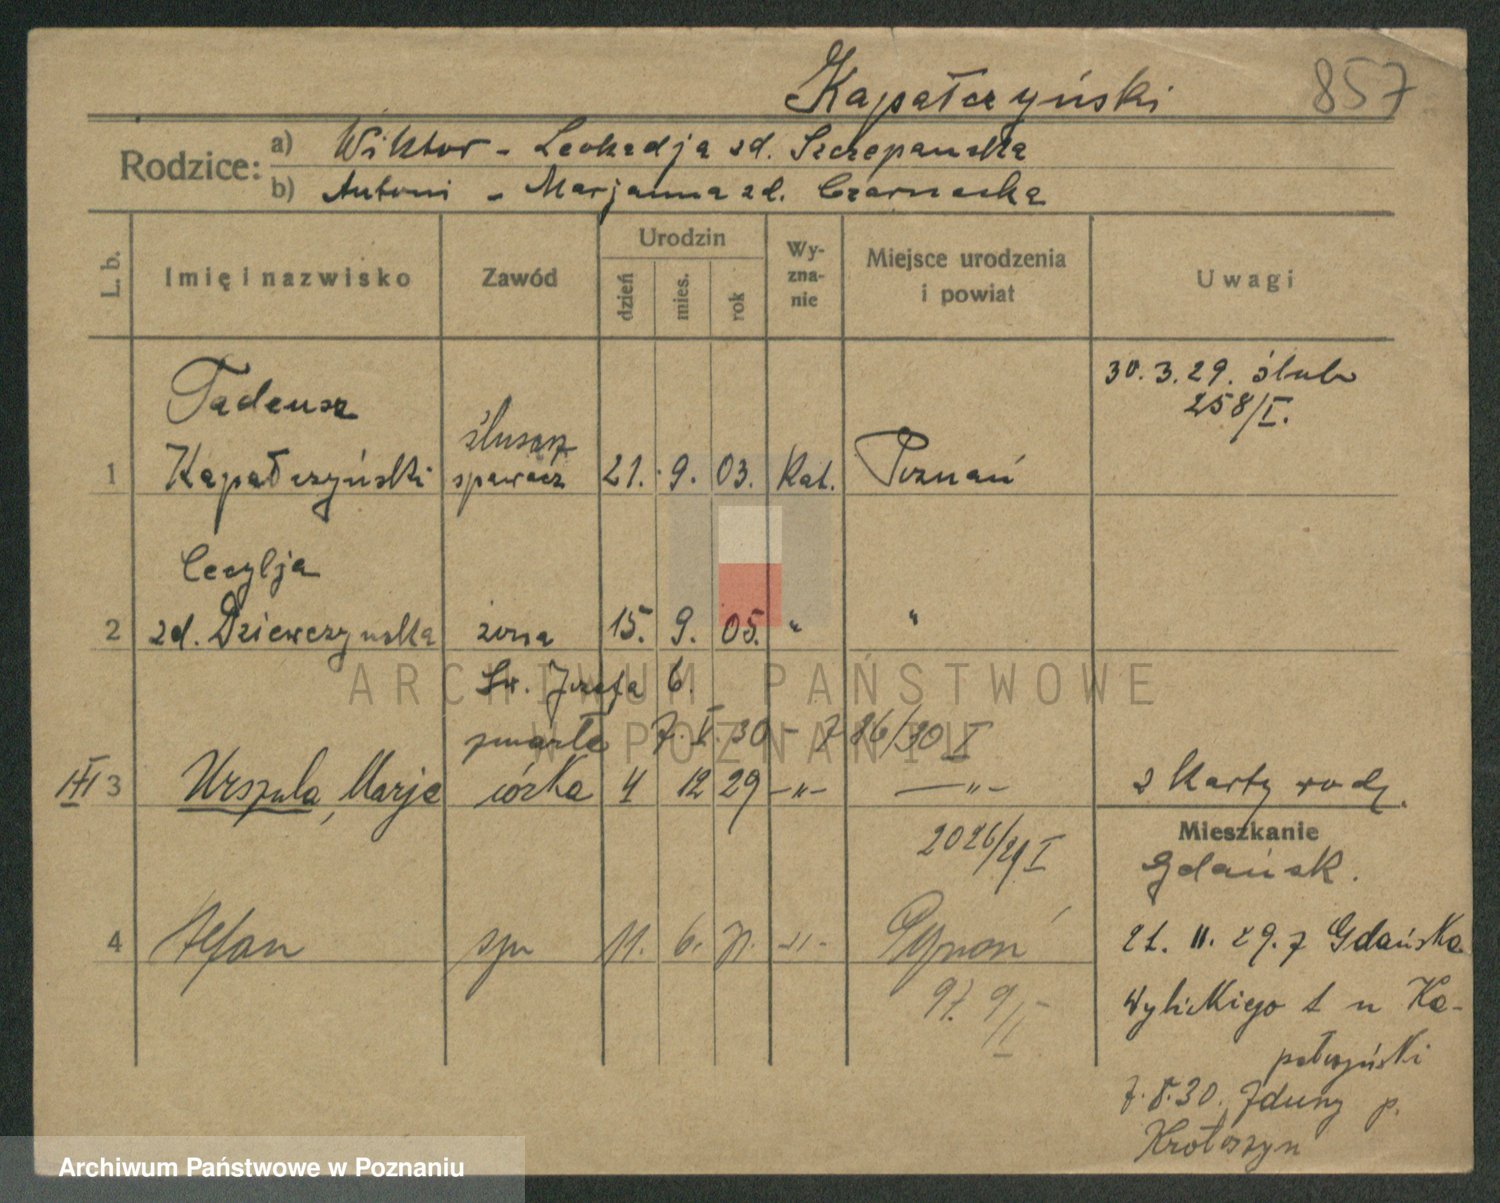 Kapałczyński 857
Rodzice: a) Wiktor - Leokadja zd. Szczepańska
b) Antoni - Marjanna zd. Czarnecka
L. b. Imię i nazwisko Zawód Urodzin dzień mies. rok Wy-zna-nie Miejsce urodzenia i powiat Uwagi
30. 3. 29. ślub
258/I.
Tadeusz
ślusarz
1 Kapałczyński spawacz 21. 9. 03. Kat. Poznań
Cecylja
2 zd. Dziewczyńska żona 15. 9. 05. " "
Św. Józefa 6.
zmarła 7. V. 30 - 786/30 I
3 Urszula, Marja córka 4 12 29 -"- -"- z karty rodz.
2026/29 I
Mieszkanie
Gdańsk.
4 Stefan syn 11. 6. 31. -"- Poznań
21. 11. 29. z Gdańska
97. 9/I
u Ka-
pałczyński
7. 8. 30. Zduny p.
Krotoszyn
ARCHIWUM PAŃSTWOWE
W POZNANIU
Archiwum Państwowe w Poznaniu